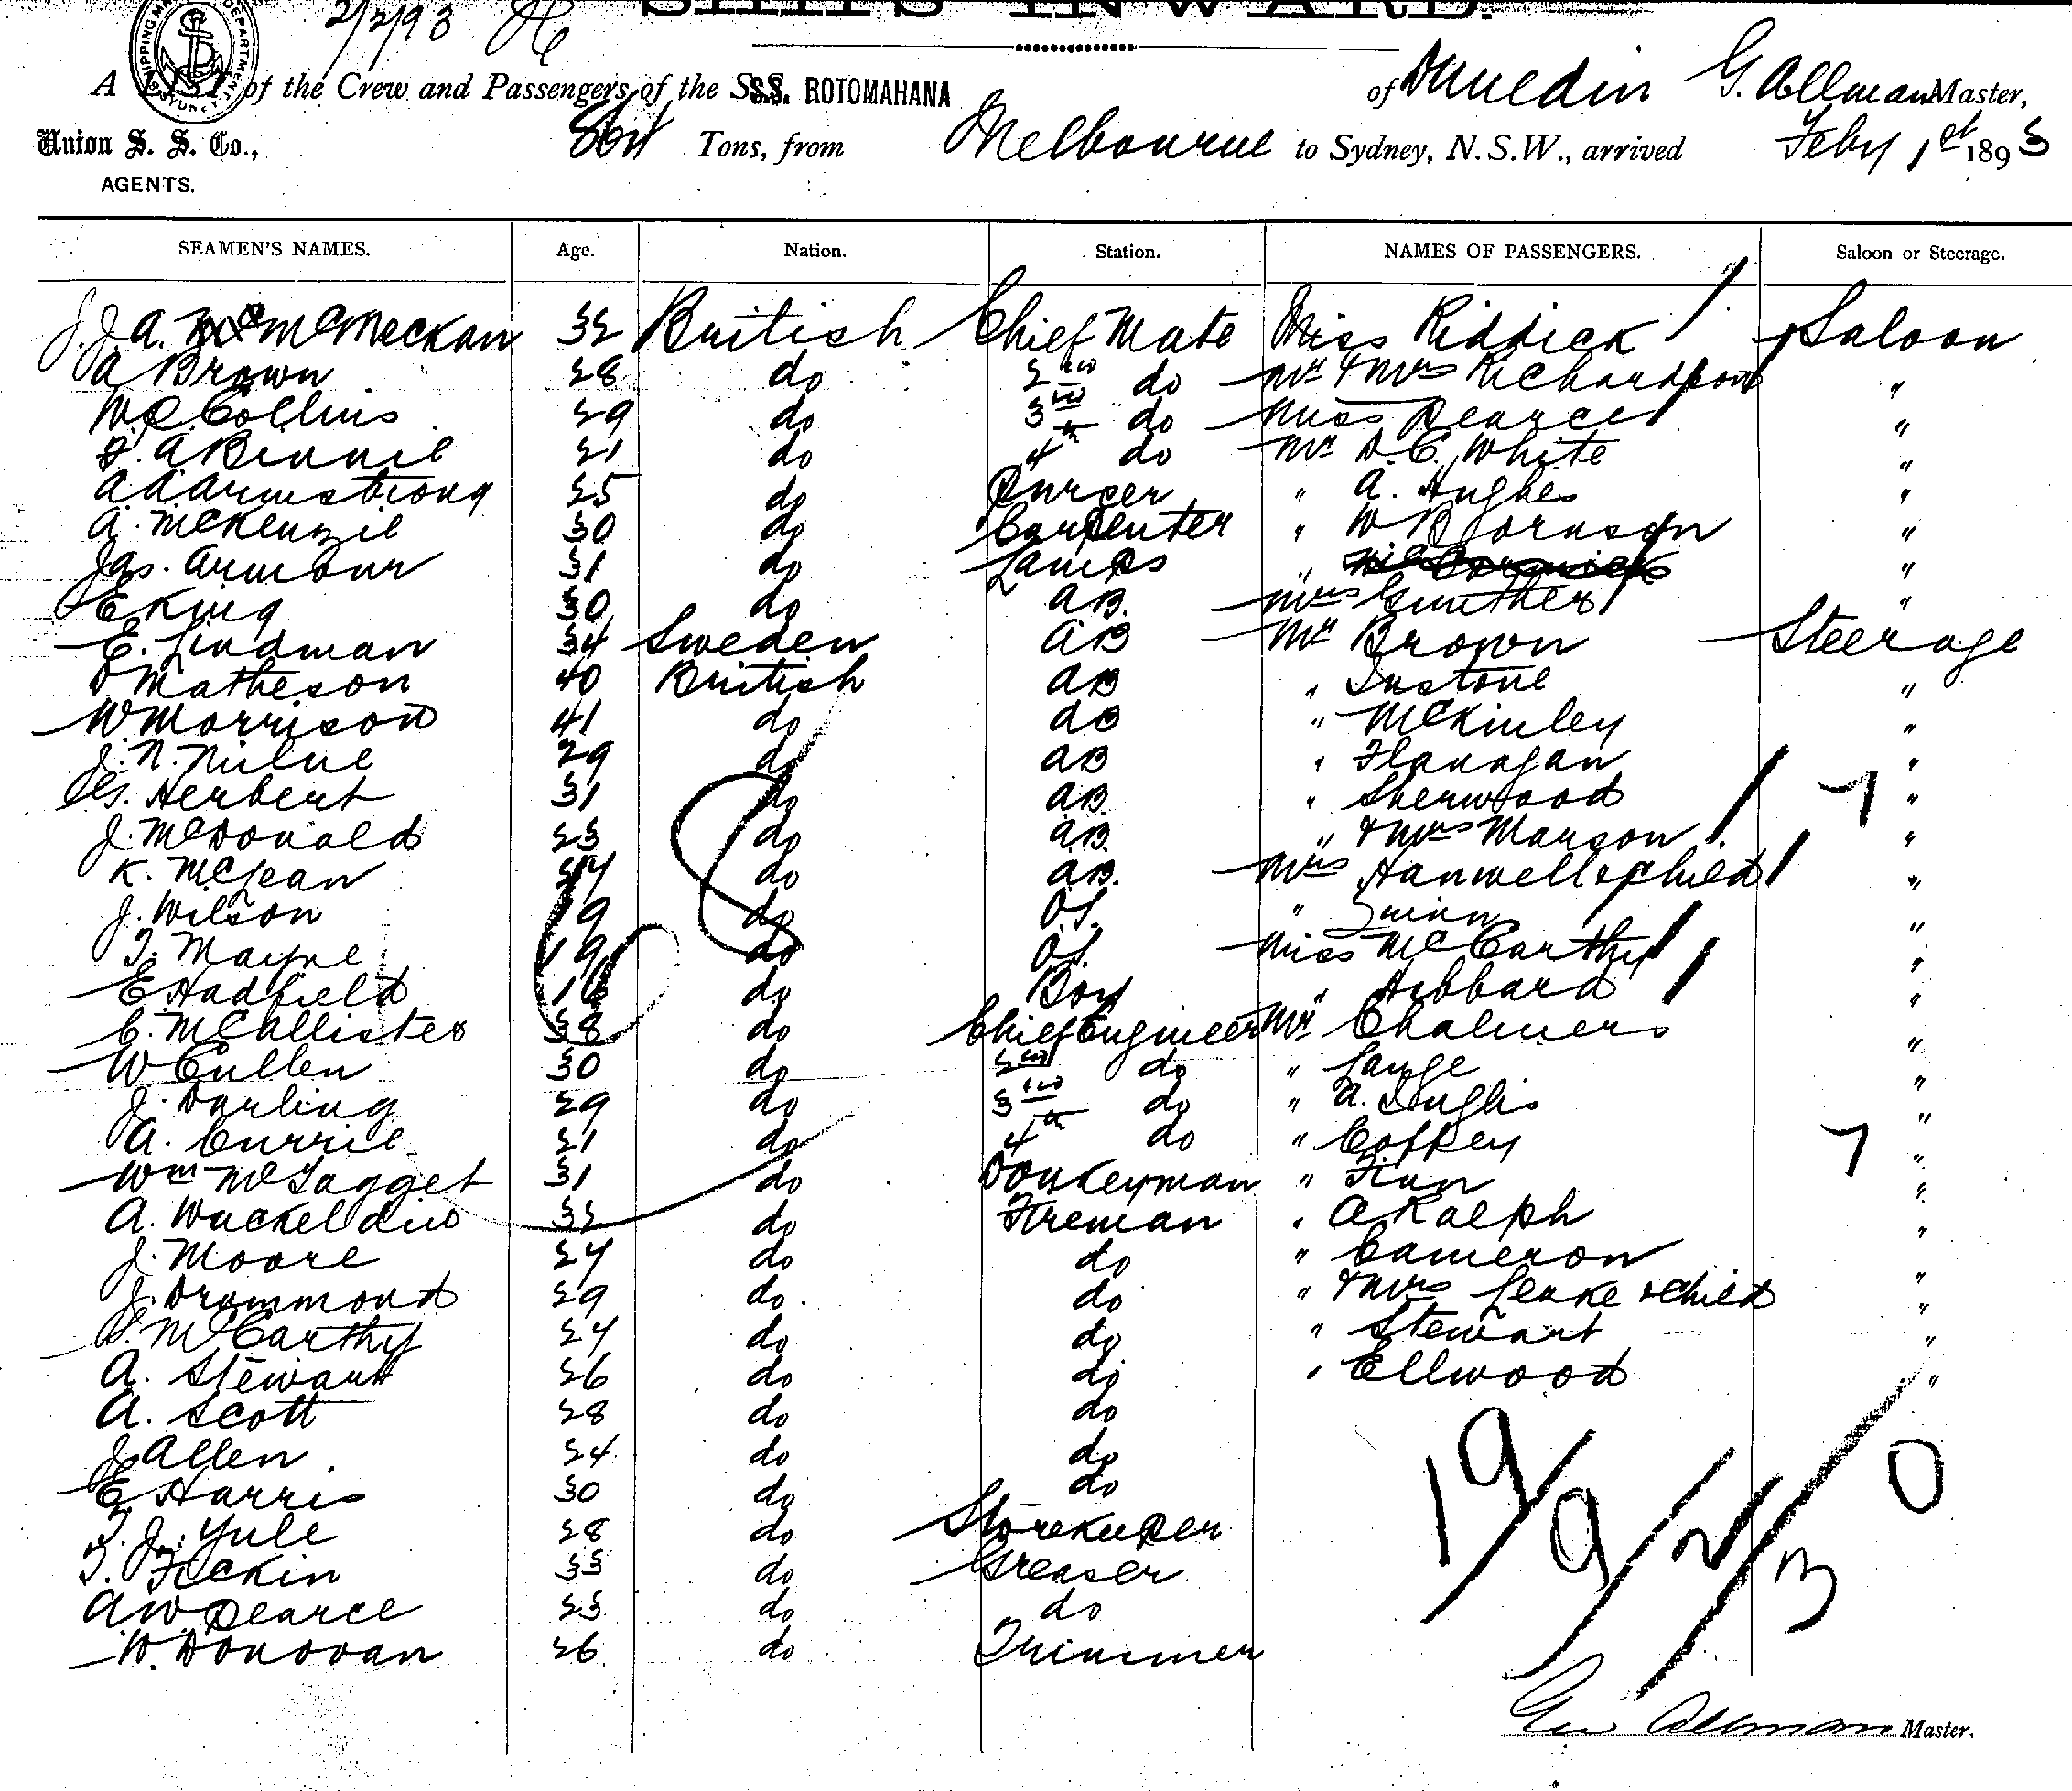 SHIPS INWARD.
2/2/93
A LIST of the Crew and Passengers of the S.S. ROTOMAHANA of Dunedin G. Allman Master,
Union S. S. Co., AGENTS. 864 Tons, from Melbourne to Sydney, N.S.W., arrived Feby 1st 1893
SEAMEN'S NAMES. Age. Nation. Station. NAMES OF PASSENGERS. Saloon or Steerage.
J. J. A. McMeckan 32 British Chief Mate Miss Riddick Saloon
A Brown 28 do 2nd do Mr & Mrs Richardson "
W. C. Collins 29 do 3rd do Miss Pearce "
F. A Binnie 21 do 4th do Mr D. C. White "
A. A Armstrong 25 do Purser " A. Hughes "
A. McKenzie 30 do Carpenter " W Bjornson "
Jas. Armour 31 do Lamps " "
E King 30 do A.B. Mrs Gunther "
E. Lindman 34 Sweden A B Mr Brown Steerage
D Matheson 40 British A B " Instone "
W Morrison 41 do A B " McKinley "
J. N. Milne 29 do A B " Flanagan "
G. Herbert 31 do A B. " Sherwood "
J. McDonald 23 do A.B. " & Mrs Manson "
K. McLean 24 do A.B. Mrs Hanwell & child "
J. Wilson 19 do O.S. " Quinn "
T. Mayne 19 do O.S. Miss McCarthy "
E Hadfield 16 do Boy " Hibbard "
C. McAllister 38 do Chief Engineer Mr Chalmers "
W Cullen 30 do 2nd do " Lange "
J. Darling 29 do 3rd do " A. Inglis "
A. Currie 21 do 4th do " Coffey "
Wm McTagget 31 do Donkeyman " Finn "
A. 32 do Fireman " A Ralph "
J. Moore 24 do do " Cameron
J. Drummond 29 do do " & Mrs Leake & child "
McCarthy 24 do do " Stewart "
A. Stewart 26 do do " Ellwood "
A. Scott 28 do do
J Allen 24 do do
E Harris 30 do do
T. J. Yule 28 do Storekeeper
T. Fickin 33 do Greaser
A W Pearce 23 do do
W. Donovan 26 do Trimmer
19/9/2/3 0
Geo Allman Master.